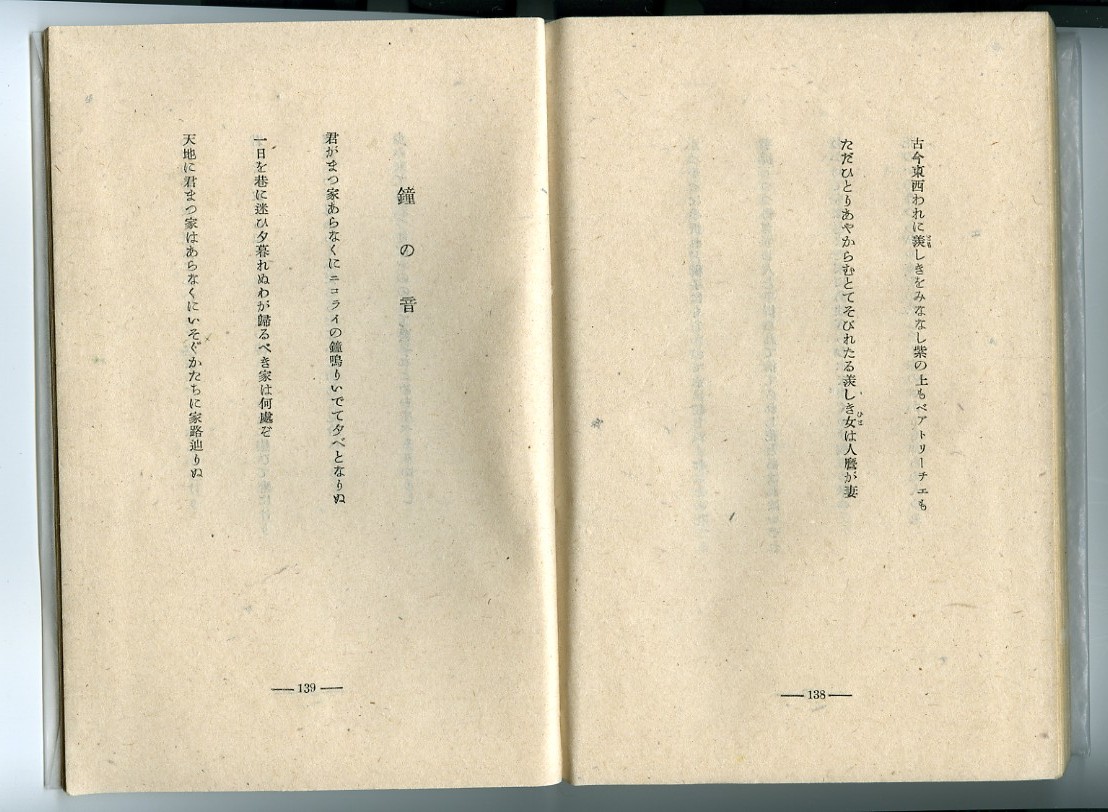 古今東西われに羨しきをみななし紫の上もベアトリーチエも
ただひとりあやからむとてそびれたる羨しき女は人麿が妻
ひと
— 138 —
鐘の音
君がまつ家あらなくにニコライの鐘鳴りいでて夕べとなりぬ
一日を巷に迷ひ夕暮れぬわが歸るべき家は何處ぞ
天地に君まつ家はあらなくにいそぐかたちに家路辿りぬ
— 139 —